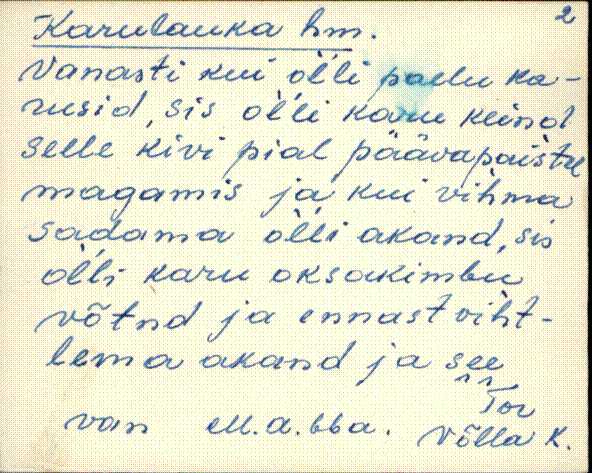 2
Karulauka hm.
Vanasti kui õlli paelu ka-
rusid, sis õlli karu keind
selle kivi pial päävapaistel
magamis ja kui vihma
sadama õlli akand, sis
õlli karu oksakimbu
võtnd ja ennast viht-
lema akand ja see
Tor
van M.a. bba. Võlla k.